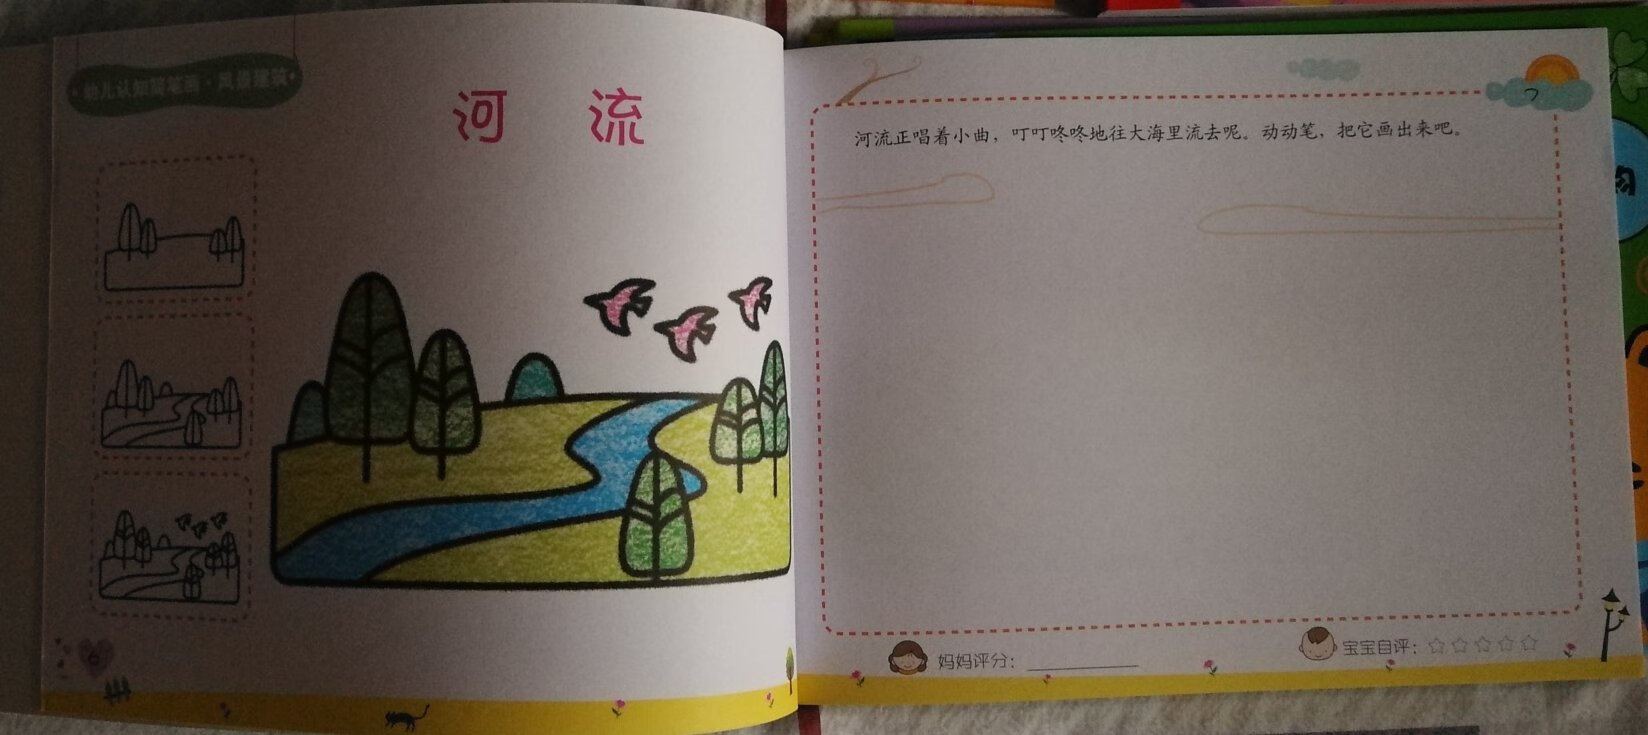 幼儿认知简笔画·风景建筑
河 流
6
河流正唱着小曲，叮叮咚咚地往大海里流去呢。动动笔，把它画出来吧。
7
妈妈评分：
宝宝自评：☆☆☆☆☆